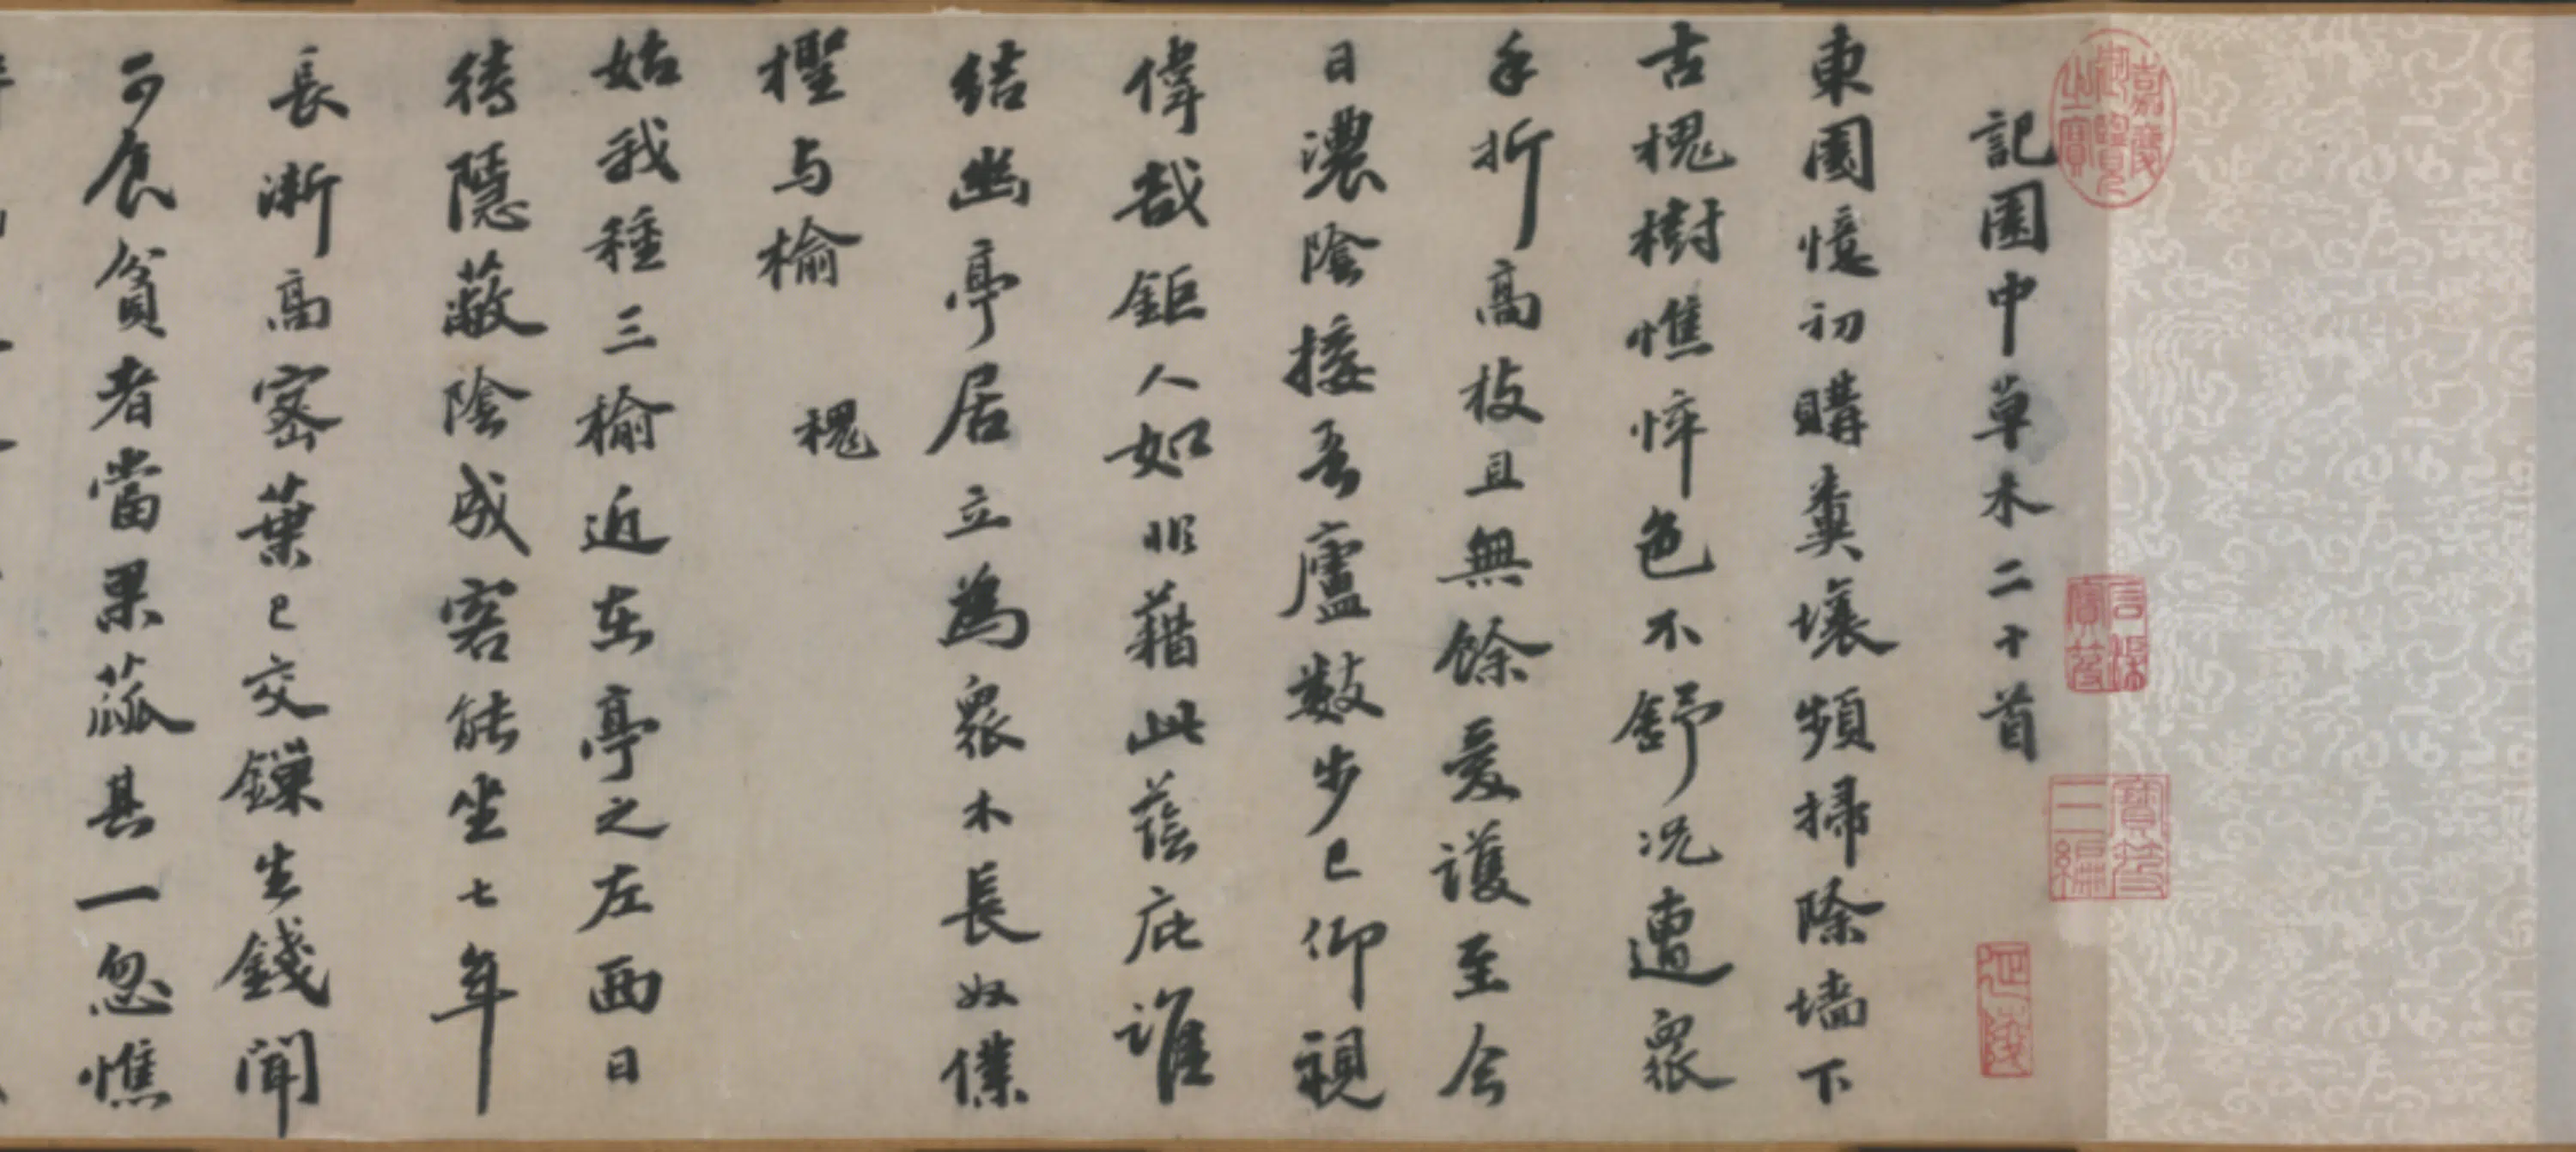 記園中草木二十首
東園憶初購糞壤頻掃除墻下
古槐樹憔悴色不舒况遭衆
手折高枝且無餘愛護至今
日濃陰接吾廬數步已仰視
偉哉鉅人如非藉此蔭庇誰
結幽亭居立為衆木長奴僕
檉与榆　槐
姑我種三榆近在亭之左西日
待隱蔽陰成客能坐七年
長漸高密葉已交鏁生錢聞
可食貧者當果蓏甚一忽憔
嘉慶御覽之寶
石渠寶笈
寶笈三編